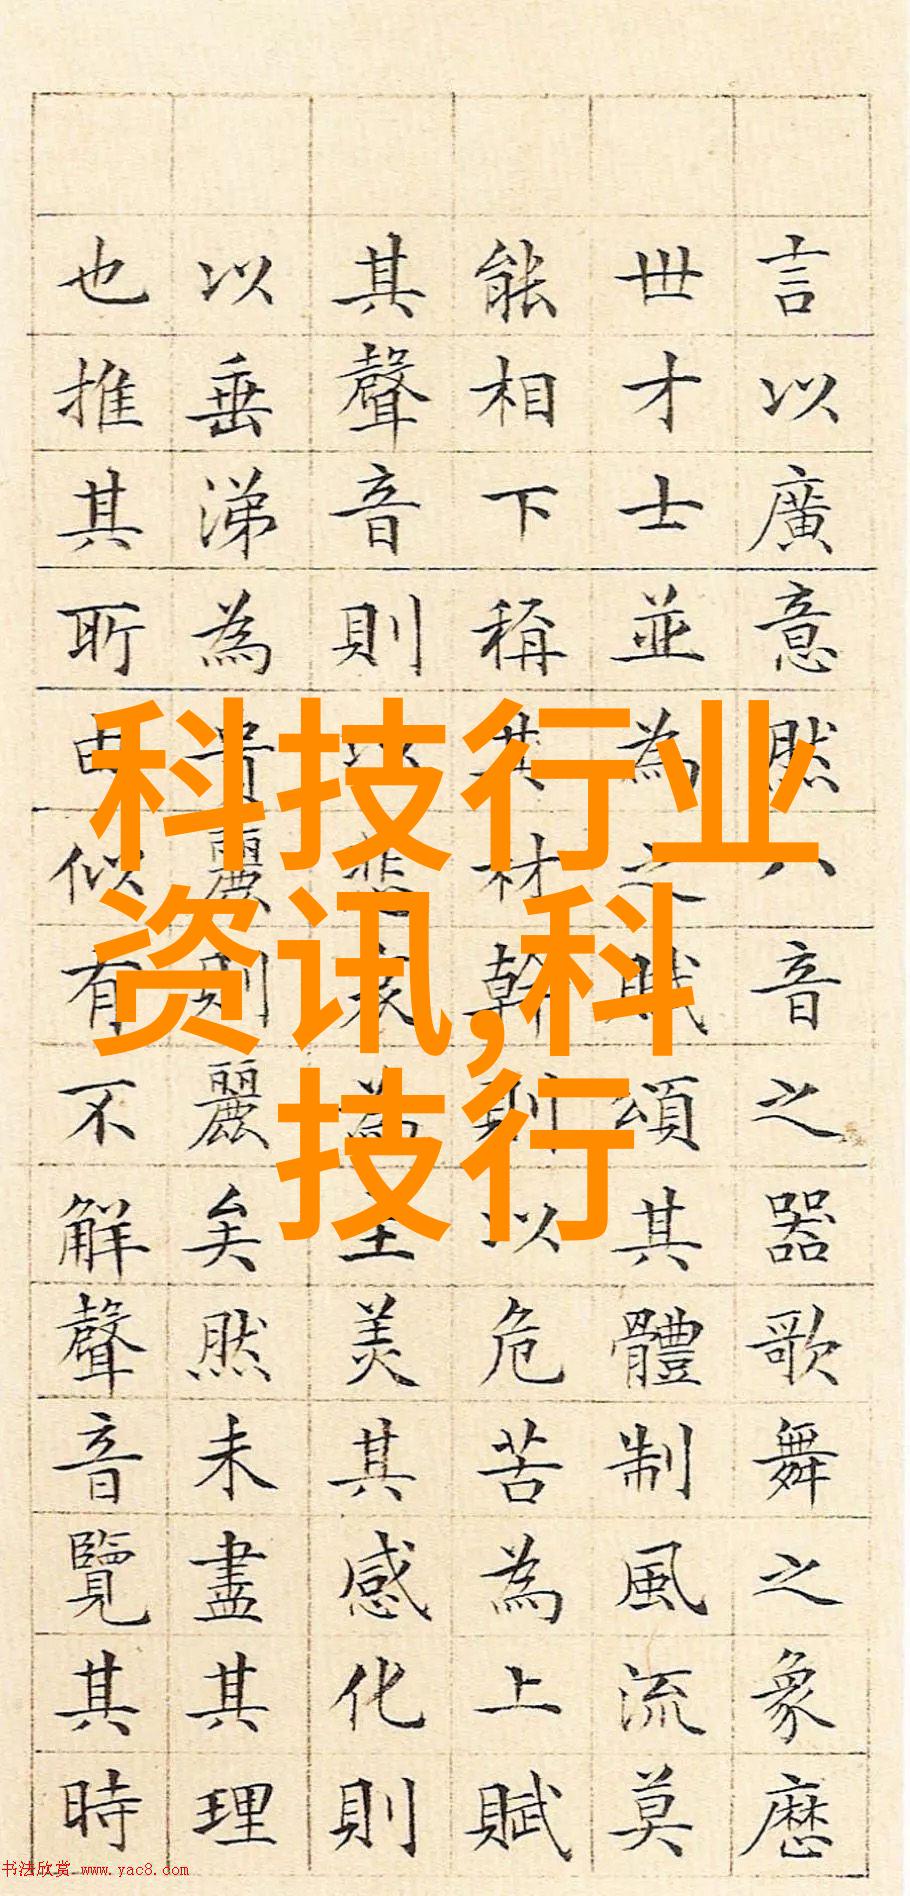 言以廣意然八音之器歌舞之象歷
世才士並為之賦頌其體制風流莫
能相下稱其材幹則以危苦為上賦
其聲音則以悲哀為主美其感化則
以垂涕為貴麗則麗矣然未盡其理
也推其所由似有不解聲音覽其時
科技行业
资讯,科
技行
书法欣赏 www.yac8.com